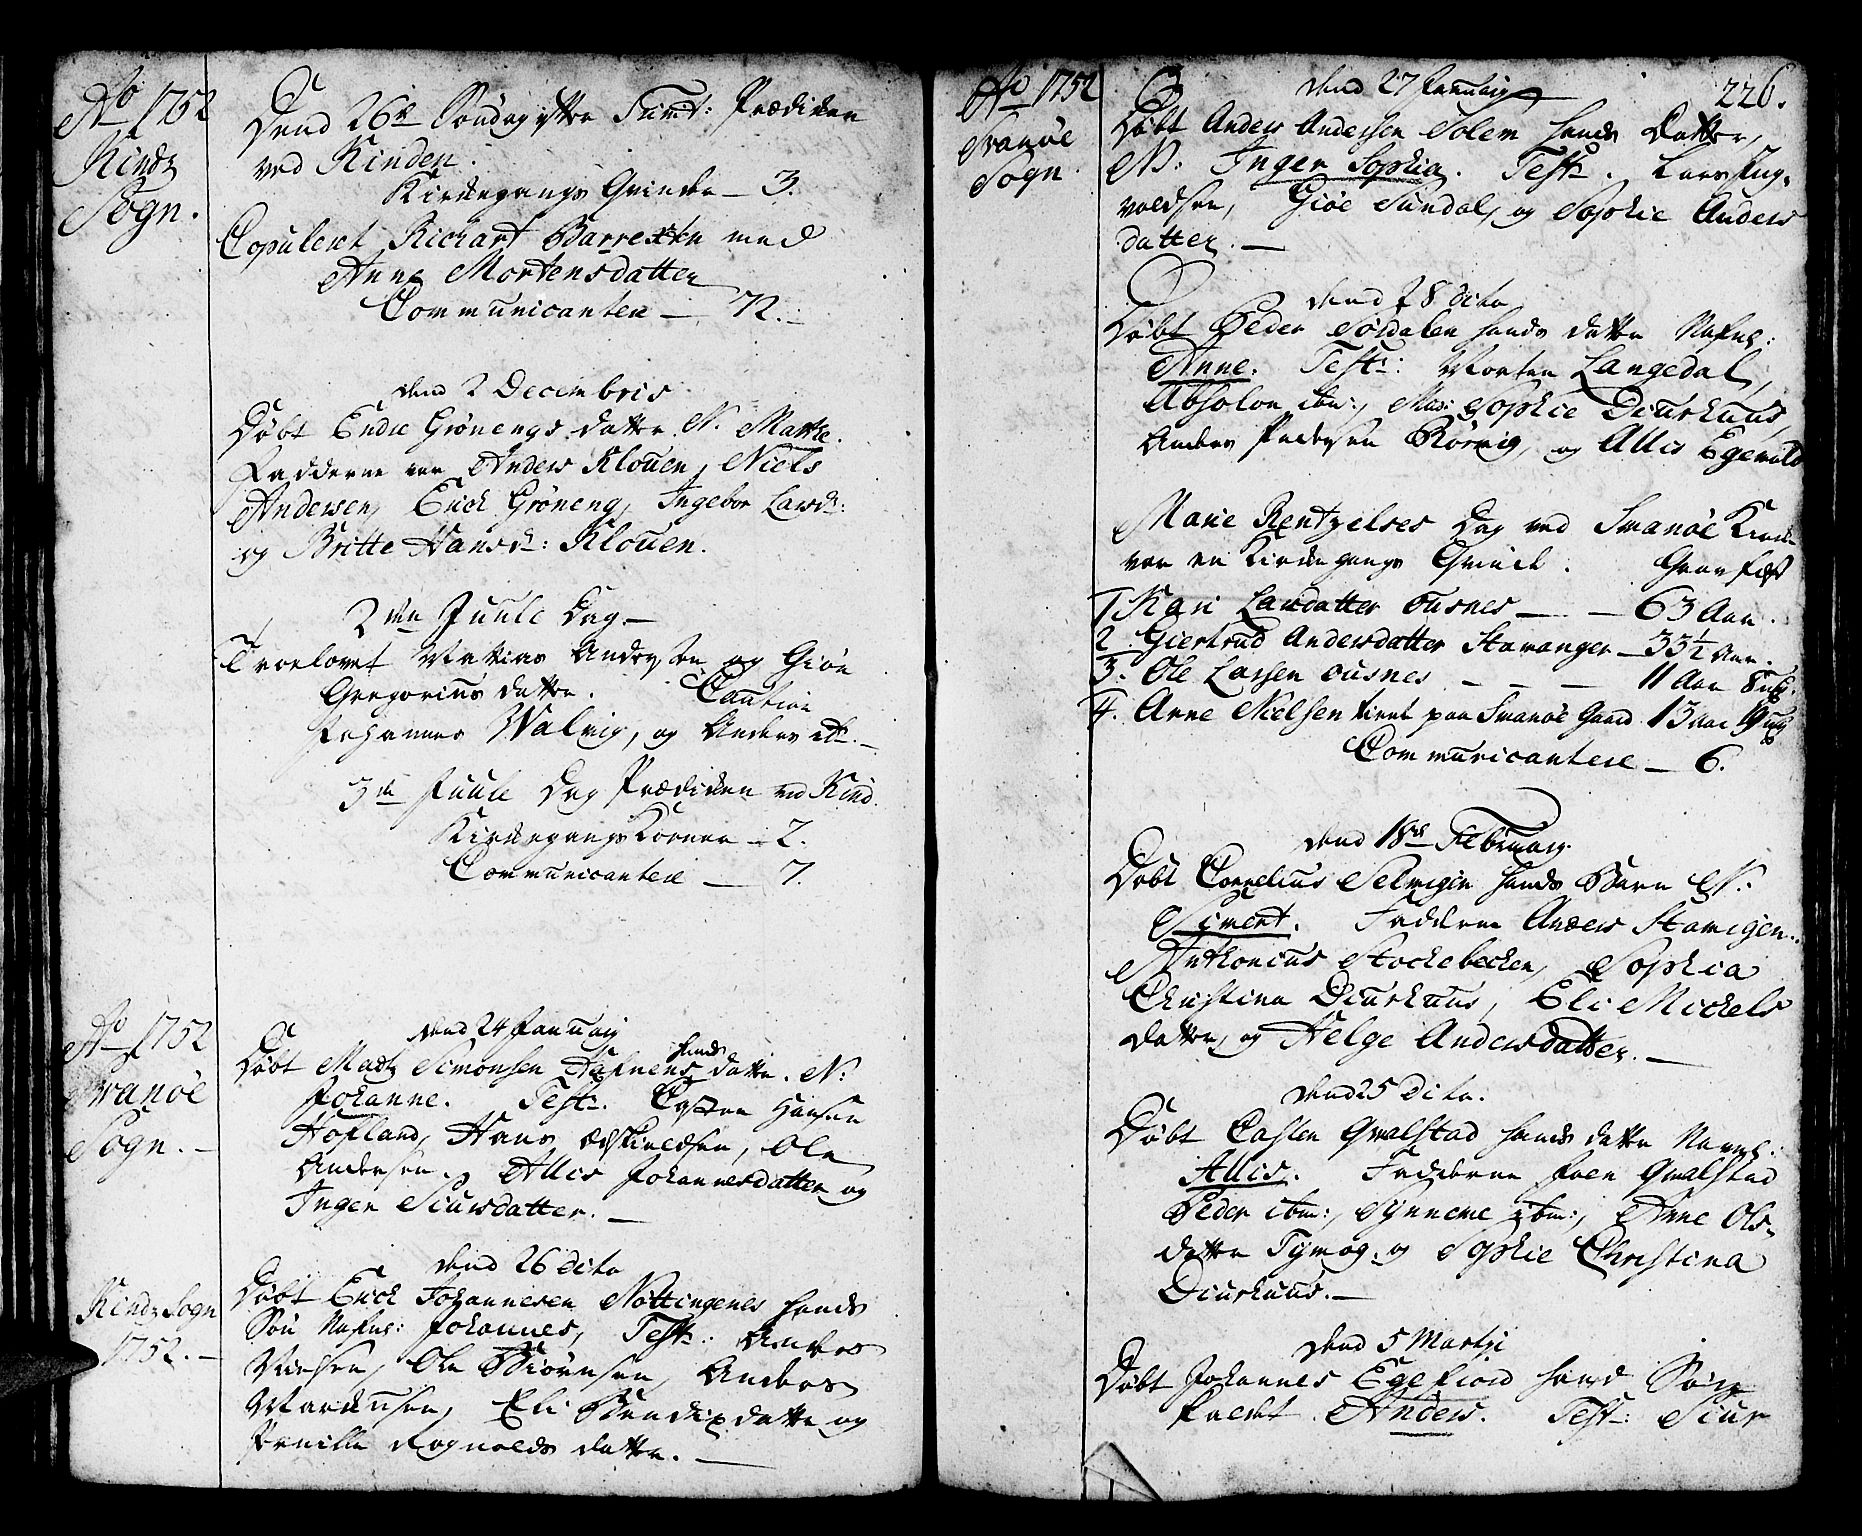 Ao 1752
Kindz
Sogn.
Dend 26de Søndag efter Trinit: Prædiken
ved Kinden.
Kirkegangs Qvinder — 3.
Copuleret Rickart Barrestke med
Anne Mortensdatter
Communicantere — 72.
dend 2 Decembris
Døbt Endre Grönengs datter N. Marthe.
Fadderne var Anders Klouen, Niels
Andersen, Erich Gröneng, Ingebor Larsd:
og Britte Hansd: Klouen.
2den Juule Dag —
Troelovet Mattias Andersen og Giøe
Gregorius datter. Caution
Johannes Walvig, og Anders ib: —
3die Juule Dag Prædiken ved Kind.
Kirkegangs Koner — 2.
Communicantere — 7.
Ao 1752
Svanöe
Sogn. —
dend 24 Januarij
Døbt Madtz Simonsen Hafnens hands datter. N:
Johanne. Test: Casten Hansen
Hofland, Hans Edskieldsen, Ole
Andersen, Allis Johannesdatter og
Inger Siursdatter. —
Kindz Sogn
1752. —
dend 26 dito
Døbt Erich Johannesen Nöttingenes hands
Søn Nafnl: Johannes, Test: Anders
Nielsen, Ole Biørnsen, Anders
Marcusen, Eli Bendixdatter og
Pernille Rognalds datter. —
Ao 1752
Svanöe
Sogn.
226.
dend 27 Januarij
Døbt Anders Andersen Solem hands Datter,
N: Inger Sophia. Test: Lars Ing-
valdsen, Giøe Sundal, og Sophie Anders
datter. —
dend 28 dito
Døbt Peder Sördalen hands datter Nafnl:
Anne. Test: Morten Langedal,
Absolon ibm:, Mad: Sophie Diurhuus,
Anders Pedersen Rörvig, og Allis Egevold
Marie Rentzelses Dag ved Svanöe Kirke
var en Kirkegangs Qvinde. Graf fæst
1. Kari Larsdatter Ousnes — — 63 Aar.
2. Giertrud Andersdatter Stavanger — 33½ Aar.
3. Ole Larsen Ousnes — — — 11 Aar 8 ug.
4. Arne Nielsen tient paa Svanöe Gaard. 13 Aar 19 ug
Communicantere — 6.
dend 18de Februarij.
Døbt Cornelius Selvigin hands Barn N:
Sivert. Faddere Anders Stavigen.
Anthonius Stockebecken, Sophia
Christina Diurhuus, Eli Mickels
datter, og Helge Andersdatter. —
dend 25 Dito.
Døbt Casten Qvalstad hands datter Navnl:
Allis. Fadderne Joen Qvalstad
Peder ibm:, Synneve ibm:, Anne Ols-
datter Tymog. og Sophie Christina
Diurhuus. —
dend 5 Martij
Døbt Johannes Egefiord hands Søn
kaldt Anders. Test: Siur